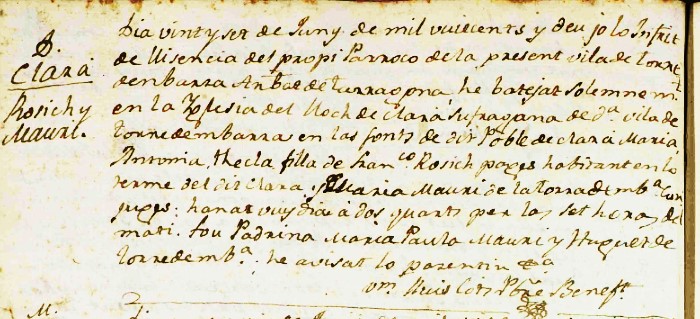 D.
Clará
Rosich y
Mauri.
Dia vint y set de Juny de mil vuicents y deu jo lo Infrit
de llisencia del propi Parroco de la present vila de Torre
dembarra Arbat de Tarragona, he batejat solemnem.t
en la Yglesia del lloch de Clará, sufragana de d.a vila de
Torredembarra en las fonts de dit Poble de Clará Maria,
Antonia, Thecla filla de Fran.co Rosich pages habitant en lo
terme del dit Clara, y Maria Mauri de la Torredemb.a Con
juges: ha nat vuy dia a dos quarts per las set horas del
mati. fou Padrina Maria Paula Mauri y Huguet de
Torredemb.a he avisat lo parentiu &a
Lluis Cots Pbre Benef.t
M.